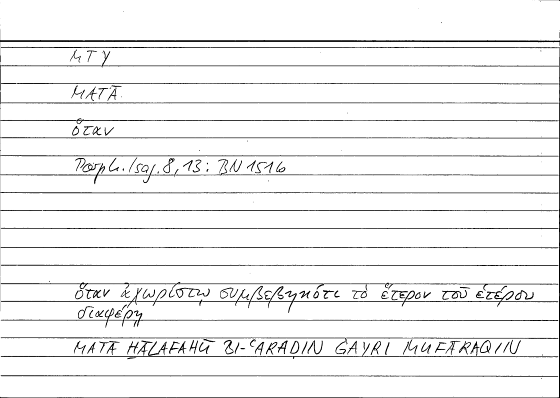 MTY
MATĀ
ὅταν
Porph. Isag. 8, 13: BN 151b
ὅταν ἀχωρίστῳ συμβεβηκότι τὸ ἕτερον τοῦ ἑτέρου
διαφέρῃ
MATĀ ḪĀLAFAHŪ BI-ʿARAḌIN ĠAYRI MUFĀRAQIN